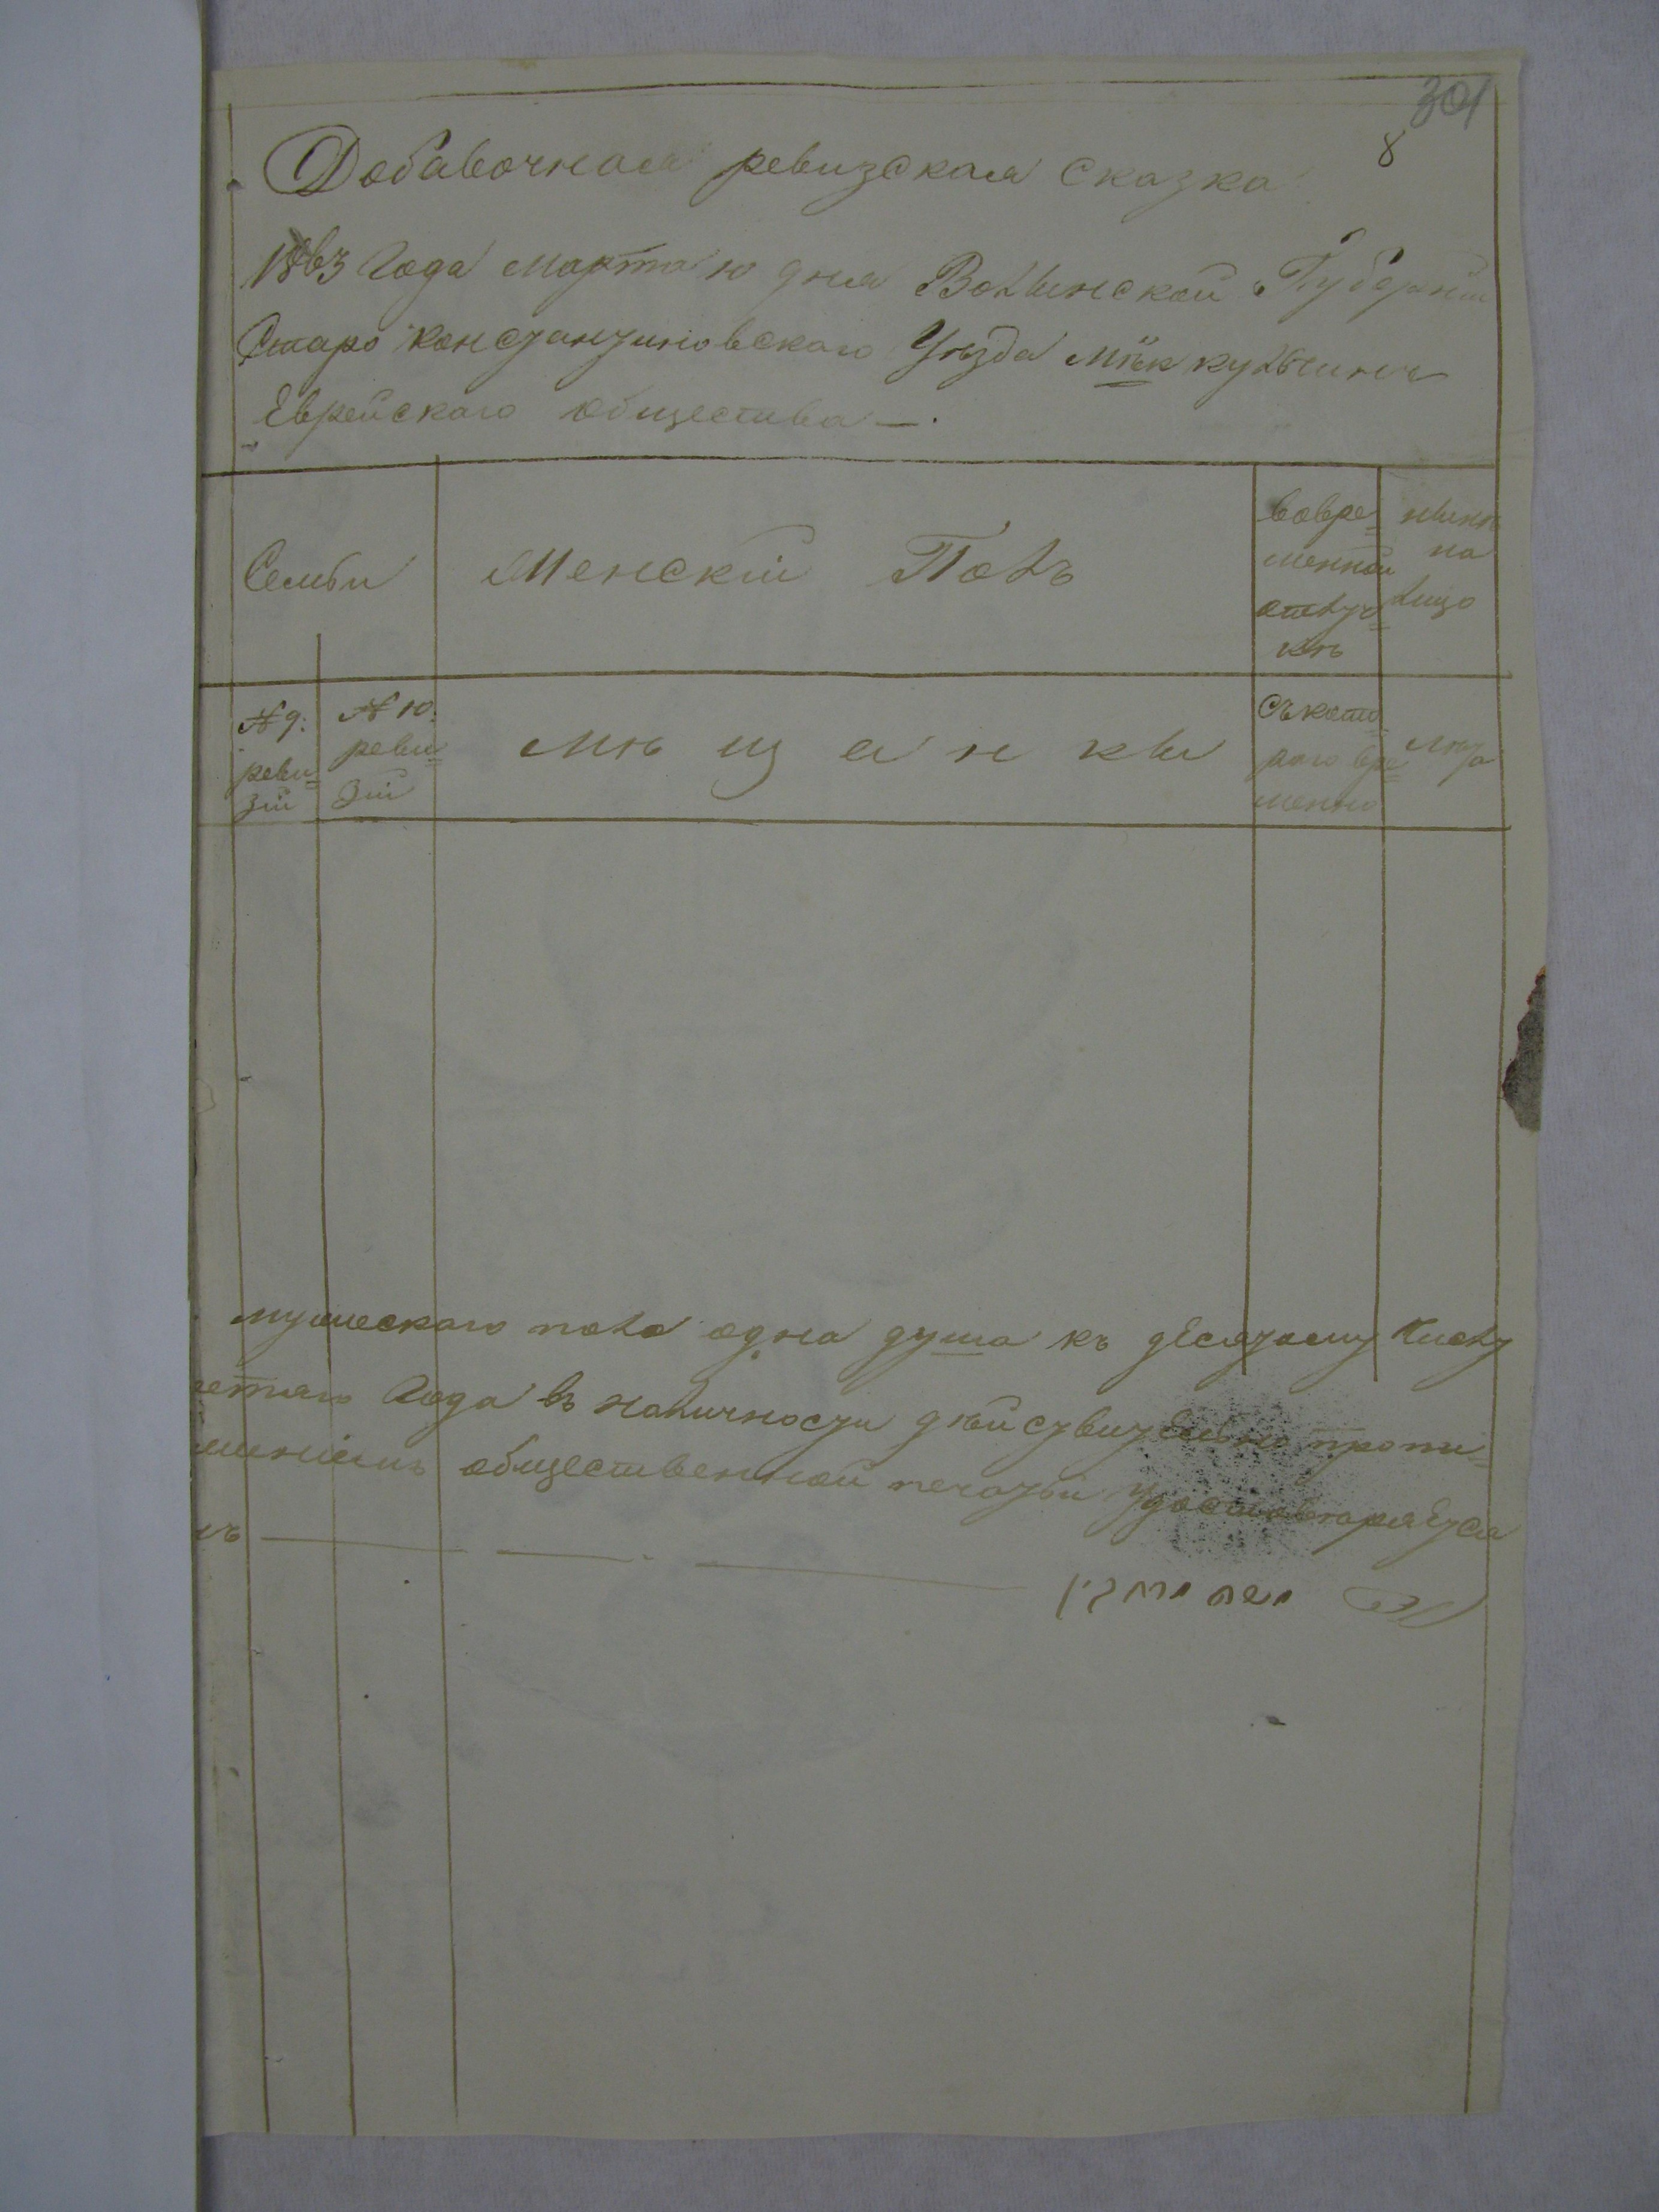 301
8
Добавочная ревизская сказка
1863 Года марта 10 дня Волынской Губерніи
Старо константиновскаго Уѣзда мѣ̈к кульчинъ
Еврейскаго общества —.
Семьи
Женскій Полъ
вовре=
менной
отлуч=
кѣ
нынѣ
на
лицо
№ 9:
реви=
зіи
№ 10:
реви=
зіи
мѣщанки
Съкото=
раго вре=
мени
лѣта
мужескаго пола одна душа къ десятому числу
етяго Года въ наличности дѣйствительно пропи=
женіемъ общественной печатьи Удостоверяется
мъ — — —